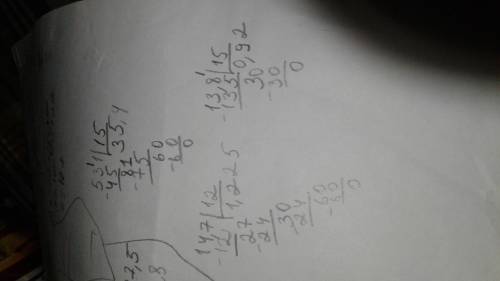 531 | 15
-45 35,4
81
-75
60
-60
0
13,8 | 15
-135 0,92
30
-30
0
14,7 | 12
-12 1,225
27
-24
30
-24
60
-60
0
7,5
,8